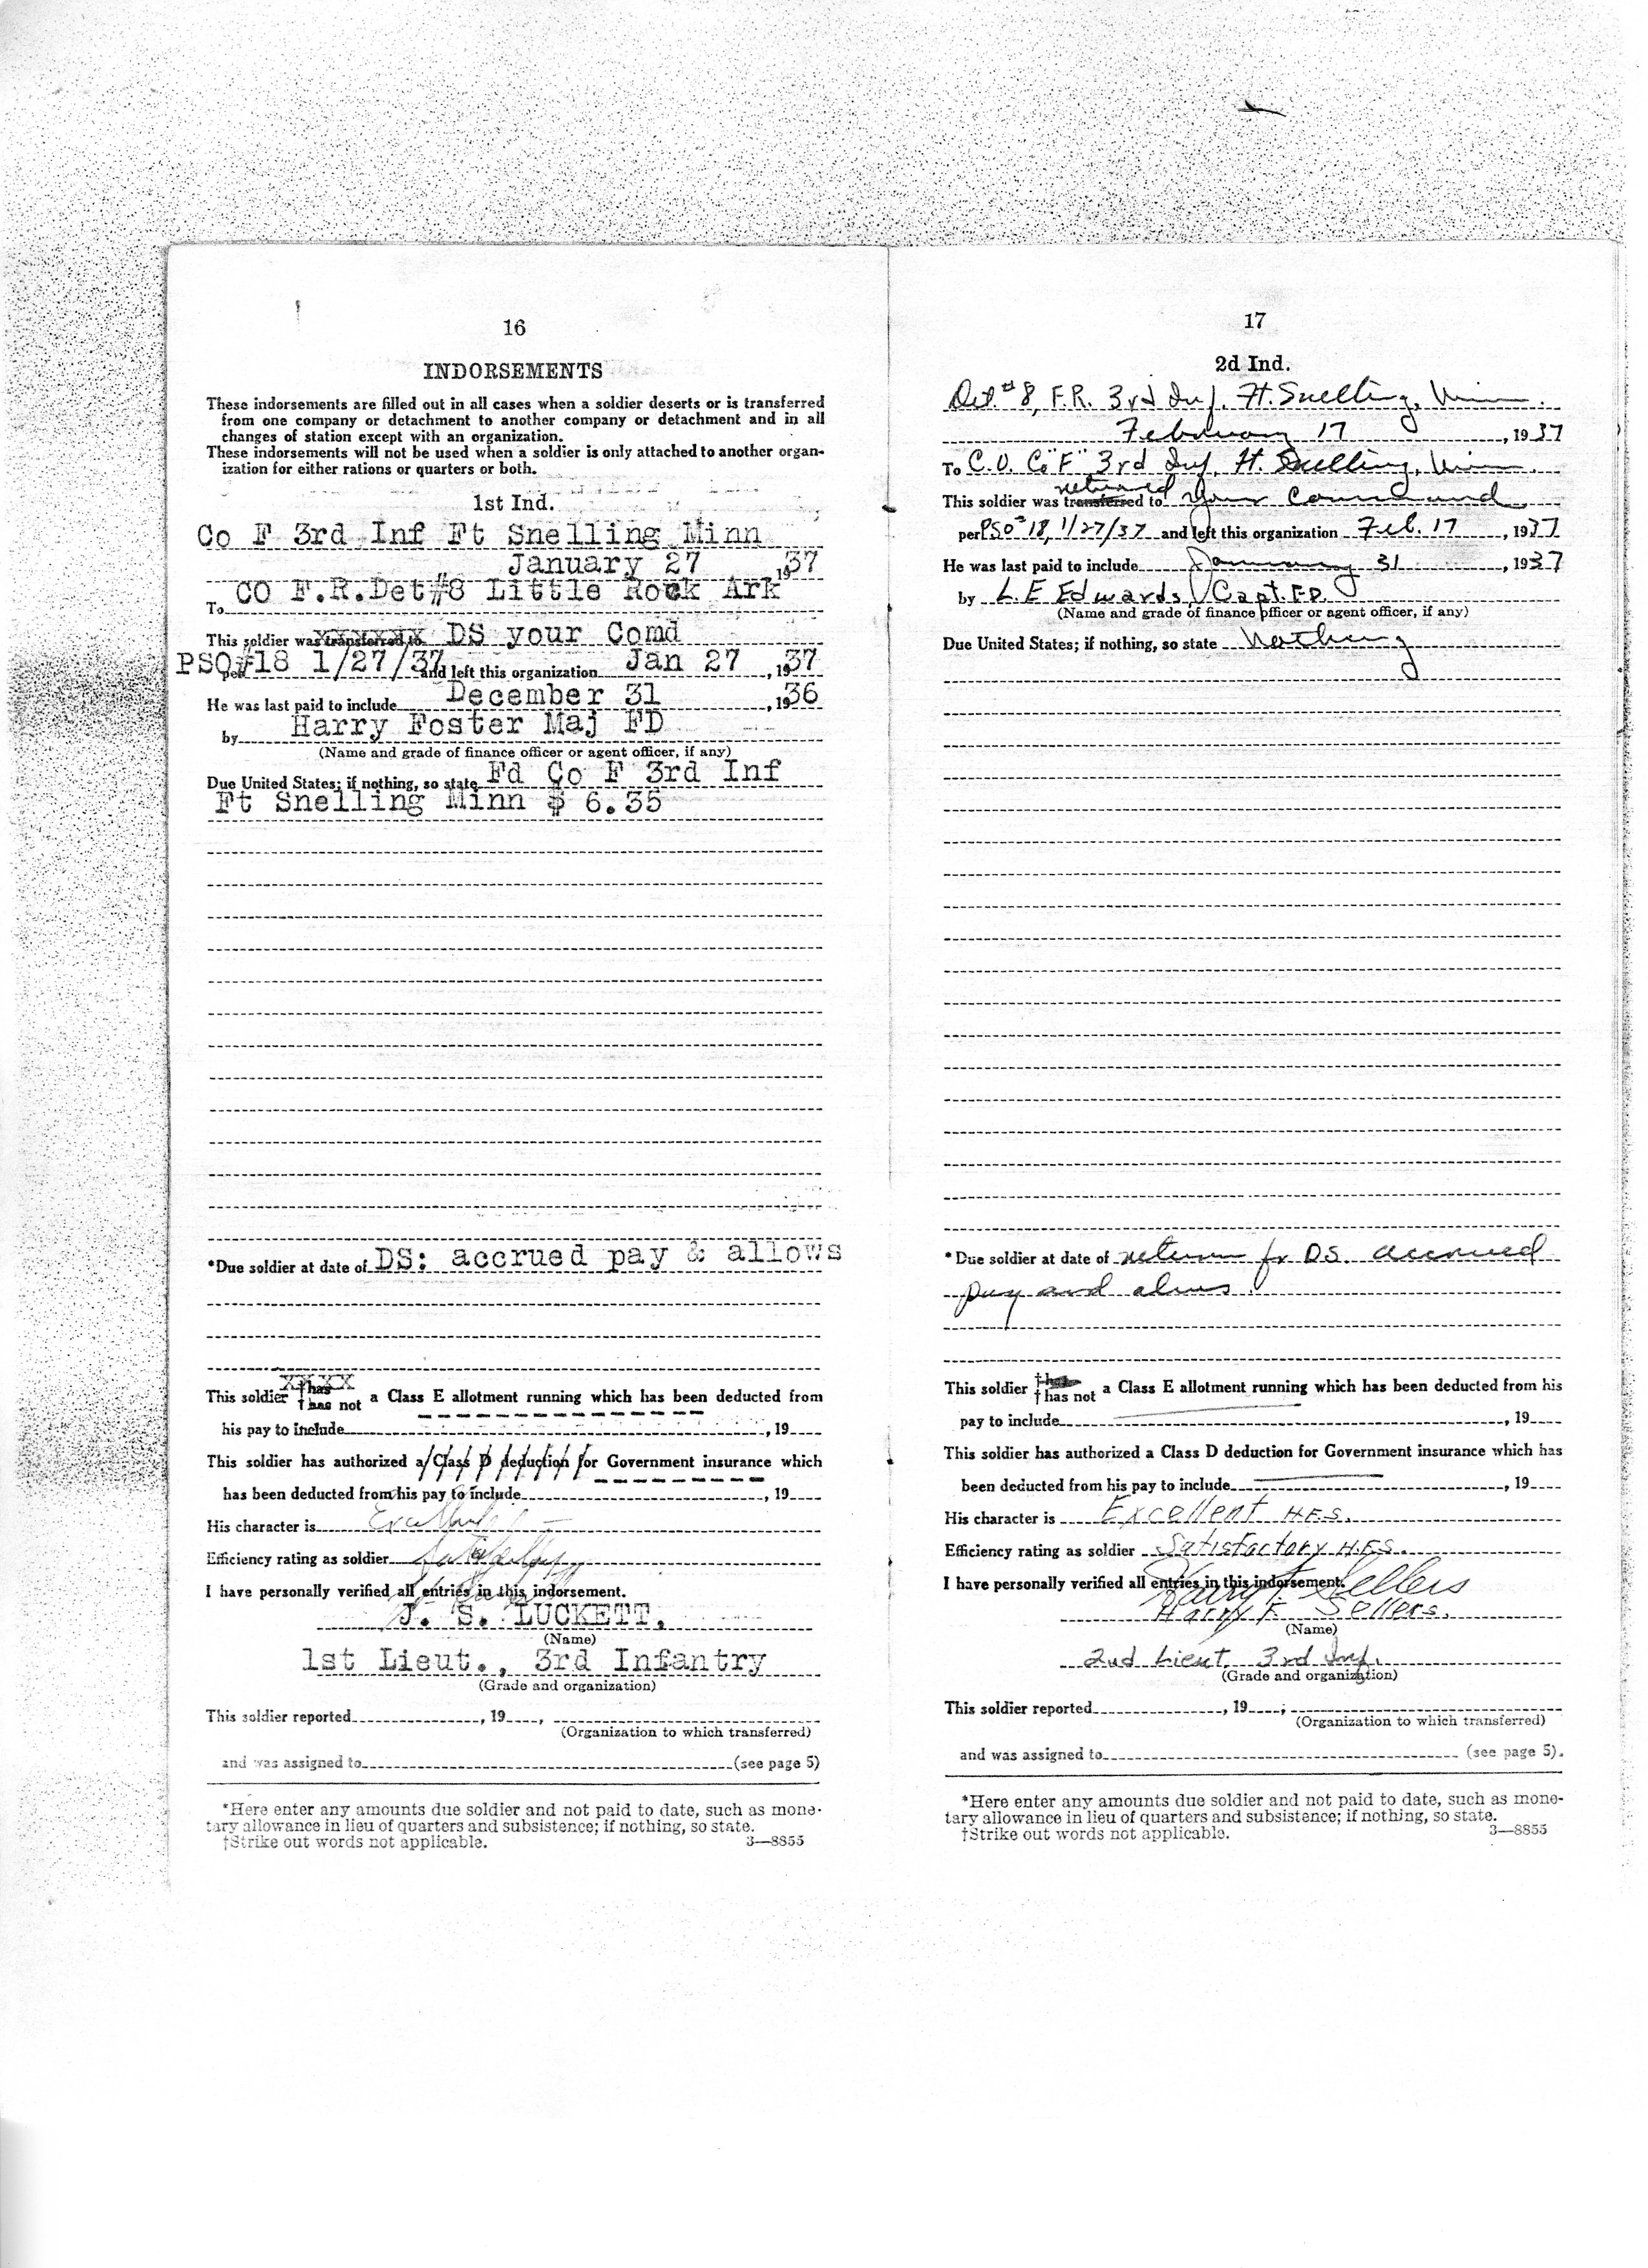 16
INDORSEMENTS
These indorsements are filled out in all cases when a soldier deserts or is transferred
from one company or detachment to another company or detachment and in all
changes of station except with an organization.
These indorsements will not be used when a soldier is only attached to another organ-
ization for either rations or quarters or both.
1st Ind.
Co F 3rd Inf Ft Snelling Minn
January 27 1937
To CO F.R.Det#8 Little Rock Ark
This soldier was transferred to DS your Comd
per PSO#18 1/27/37 and left this organization Jan 27, 1937
He was last paid to include December 31, 1936
by Harry Foster Maj FD
(Name and grade of finance officer or agent officer, if any)
Due United States; if nothing, so state Fd Co F 3rd Inf
Ft Snelling Minn $ 6.35
*Due soldier at date of DS: accrued pay & allows
XXXX
This soldier †has
†has not a Class E allotment running which has been deducted from
his pay to include , 19
This soldier has authorized a Class D deduction for Government insurance which
has been deducted from his pay to include , 19
His character is Excellent
Efficiency rating as soldier
I have personally verified all entries in this indorsement.
J. S. LUCKETT,
(Name)
1st Lieut., 3rd Infantry
(Grade and organization)
This soldier reported , 19 ,
(Organization to which transferred)
and was assigned to (see page 5)
*Here enter any amounts due soldier and not paid to date, such as mone-
tary allowance in lieu of quarters and subsistence; if nothing, so state.
†Strike out words not applicable. 3—8855
17
2d Ind.
Det. #8, F.R. 3rd Inf. Ft. Snelling, Minn.
February 17, 1937
To C.O. Co "F" 3rd Inf. Ft. Snelling, Minn.
returned
This soldier was transferred to your command
per PSO #18, 1/27/37 and left this organization Feb. 17, 1937
He was last paid to include January 31, 1937
by L.E Edwards, Capt. F.D.
(Name and grade of finance officer or agent officer, if any)
Due United States; if nothing, so state Nothing
*Due soldier at date of return fr D.S. accrued
pay and alws.
This soldier †has
†has not a Class E allotment running which has been deducted from his
pay to include , 19
This soldier has authorized a Class D deduction for Government insurance which has
been deducted from his pay to include , 19
His character is Excellent H.F.S.
Efficiency rating as soldier Satisfactory H.F.S.
I have personally verified all entries in this indorsement.
Harry F Sellers
Harry F. Sellers.
(Name)
2nd Lieut 3rd Inf.
(Grade and organization)
This soldier reported , 19 ;
(Organization to which transferred)
and was assigned to (see page 5).
*Here enter any amounts due soldier and not paid to date, such as mone-
tary allowance in lieu of quarters and subsistence; if nothing, so state.
†Strike out words not applicable. 3—8855